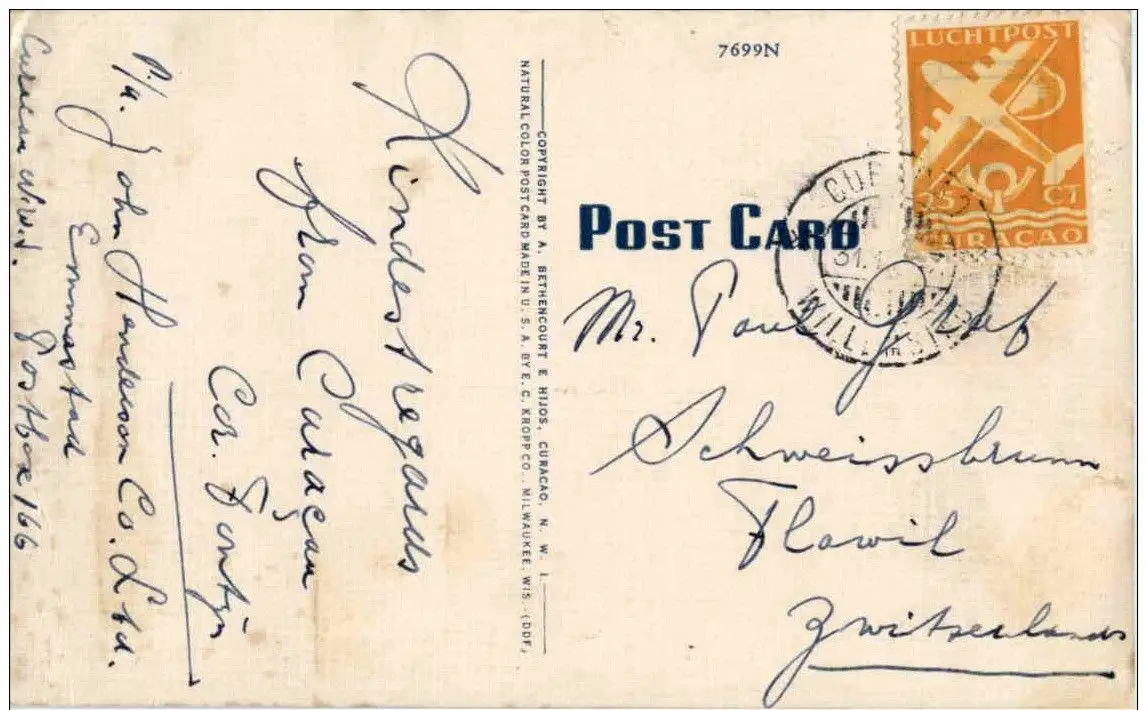 7699N
LUCHTPOST
25 CT
CURAÇAO
POST CARD
WILLEMSTAD
Mr. Paul Graf
Schweissbrunn
Flawil
Zwitserland
COPYRIGHT BY A. BETHENCOURT E HIJOS, CURACAO, N. W. I.
NATURAL COLOR POST CARD MADE IN U. S. A. BY E. C. KROPP CO., MILWAUKEE, WIS. (DDF,
Kindest regards
from Curaçau
Cor. Fontijn
P/a. John Henderson Co. Ltd.
Emmastad
Curacau N.W.I. Postbox 166